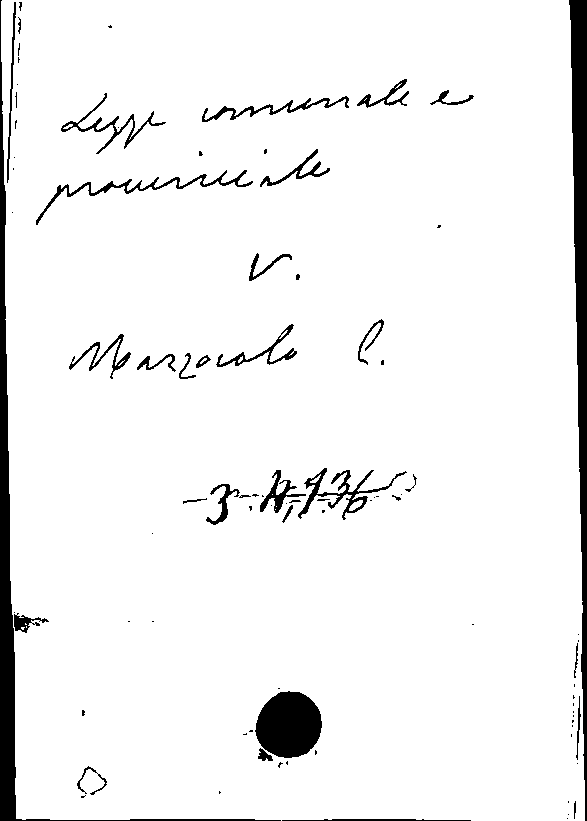 Legge comunale e
provinciale
V.
Mazzocolo E.